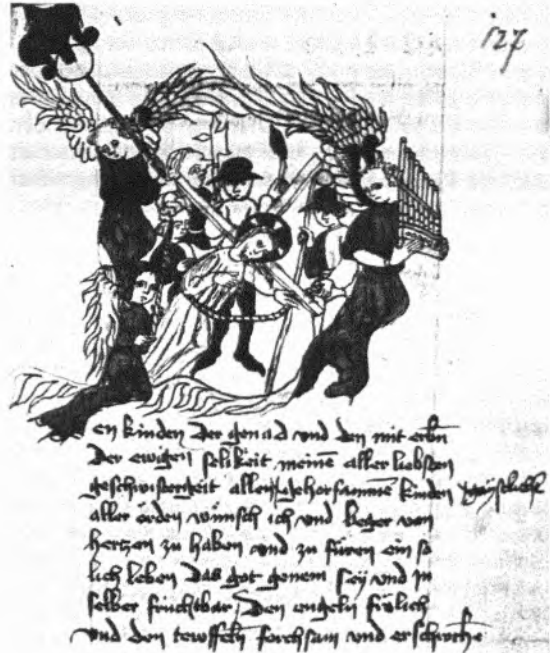 127
en kinden der genad vnd den mit erbn
Der ewigen selikeit meinē aller liebsten
geschwistergeit allen gehorsammē kinden gaÿstlich
aller orden wünsch ich vnd beger von
hertzen zu haben vnd zu füren ein so
lich leben Das got genem seÿ vnd in
selber fruchtbar / Den engeln frölich
vnd den tewffeln forchsam vnd erschrockē